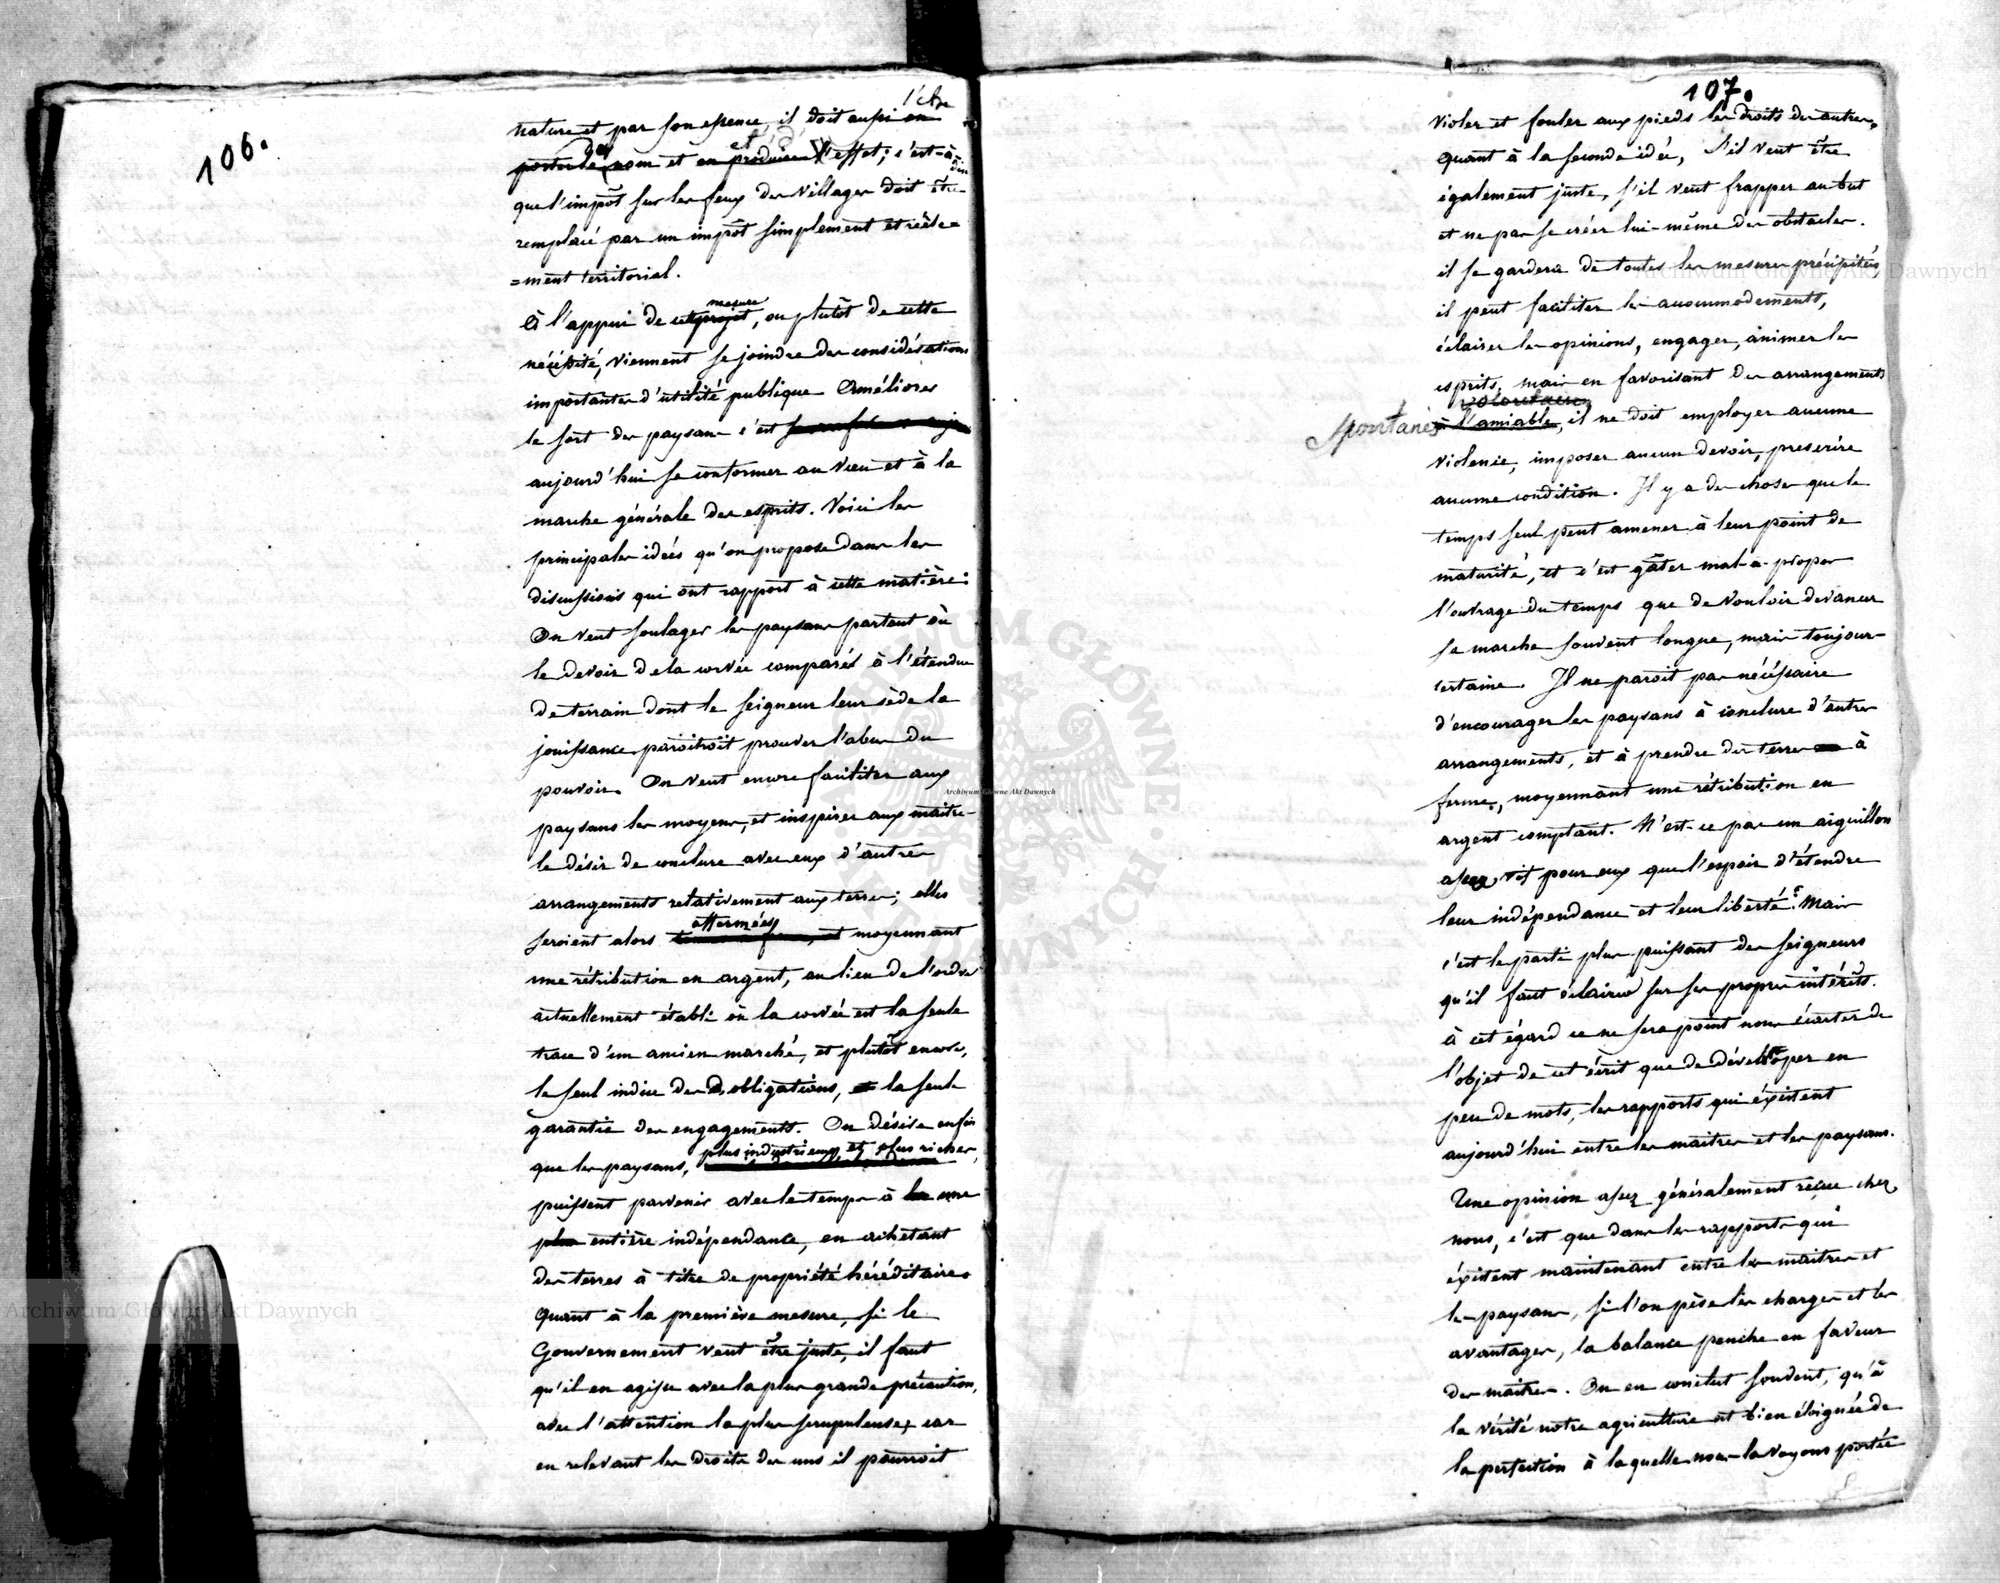 106.
l'être
nature et par son essence, il doit aussi en
porter le nom et en produire l'effet; c'est-à-dire
que l'impôt sur les feux des villages doit être
remplacé par un impôt simplement et réele=
=ment territorial.
mesure
à l'appui de cet projet, ou plutôt de cette
nécéssité, viennent se joindre des considérations
importantes d'utilité publique. Améliorer
le sort des paysans c'est
aujourd'hui se conformer au vœu et à la
marche générale des esprits. Voici les
principales idées qu'on propose dans les
discussions qui ont rapport à cette matière:
On veut soulager les paysans partout où
le devoir de la corvée comparés à l'étendue
de terrain dont le seigneur leur cède la
jouissance paroitroit prouver l'abus du
pouvoir. On veut encore faciliter aux
paysans les moyens, et inspirer aux maitres
le désir de conclure avec eux d'autres
arrangements relativement aux terres; elles
affermées
seroient alors moyennant
une rétribution en argent, au lieu de l'ordre
actuellement établi où la corvée est la seule
trace d'un ancien marché, et plutôt encore,
le seul indice des obligations, la seule
garantie des engagements. On désire enfin
plus industrieux et plus riches,
que les paysans,
puissent parvenir avec le temps à une
plus entière indépendance, en achetant
des terres à titre de propriété héréditaire.
Quant à la première mesure, si le
Gouvernement veut être juste, il faut
qu'il en agisse avec la plus grande précaution,
avec l'attention la plus scrupuleuse, car
en relevant les droits des uns il pourroit
107.
violer et fouler aux pieds les droits des autres.
Quant à la seconde idée, s'il veut être
également juste, s'il veut frapper au but
et ne pas se créer lui-même des obstacles.
il se gardera de toutes les mesures précipitées
il peut faciliter les accommodements,
éclairer les opinions, engager, animer les
esprits, mais en favorisant des arrangements
volontaires
Spontanés à l'amiable, il ne doit employer aucune
violence, imposer aucun devoir, prescrire
aucune condition. Il y a des choses que le
temps seul peut amener à leur point de
maturité, et c'est gâter mal-a-propos
l'ouvrage du temps que de vouloir devancer
sa marche souvent longue, mais toujours
certaine. Il ne paroit pas nécéssaire
d'encourager les paysans à conclure d'autres
arrangements, et à prendre des terres à
ferme, moyennant une rétribution en
argent comptant. N'est-ce pas un aiguillon
assez vif pour eux que l'espoir d'étendre
leur indépendance et leur liberté? Mais
c'est le parti plus puissant des seigneurs
qu'il faut éclairer sur ses propres intérêts.
à cet égard ce ne sera point nous écarter de
l'objet de cet écrit que de développer en
peu de mots, les rapports qui éxistent
aujourd'hui entre les maitres et les paysans.
Une opinion assez généralement reçue chez
nous, c'est que dans les rapports qui
éxistent maintenant entre les maitres et
les paysans, si l'on pèse les charges et les
avantages, la balance penche en faveur
des maitres. On en conclut souvent, qu'à
la vérité notre agriculture est bien éloignée de
la perfection à laquelle nous la voyons portée
Archiwum Główne Akt Dawnych
Archiwum Główne Akt Dawnych
Archiwum Główne Akt Dawnych
ARCHIWUM GŁÓWNE AKT DAWNYCH